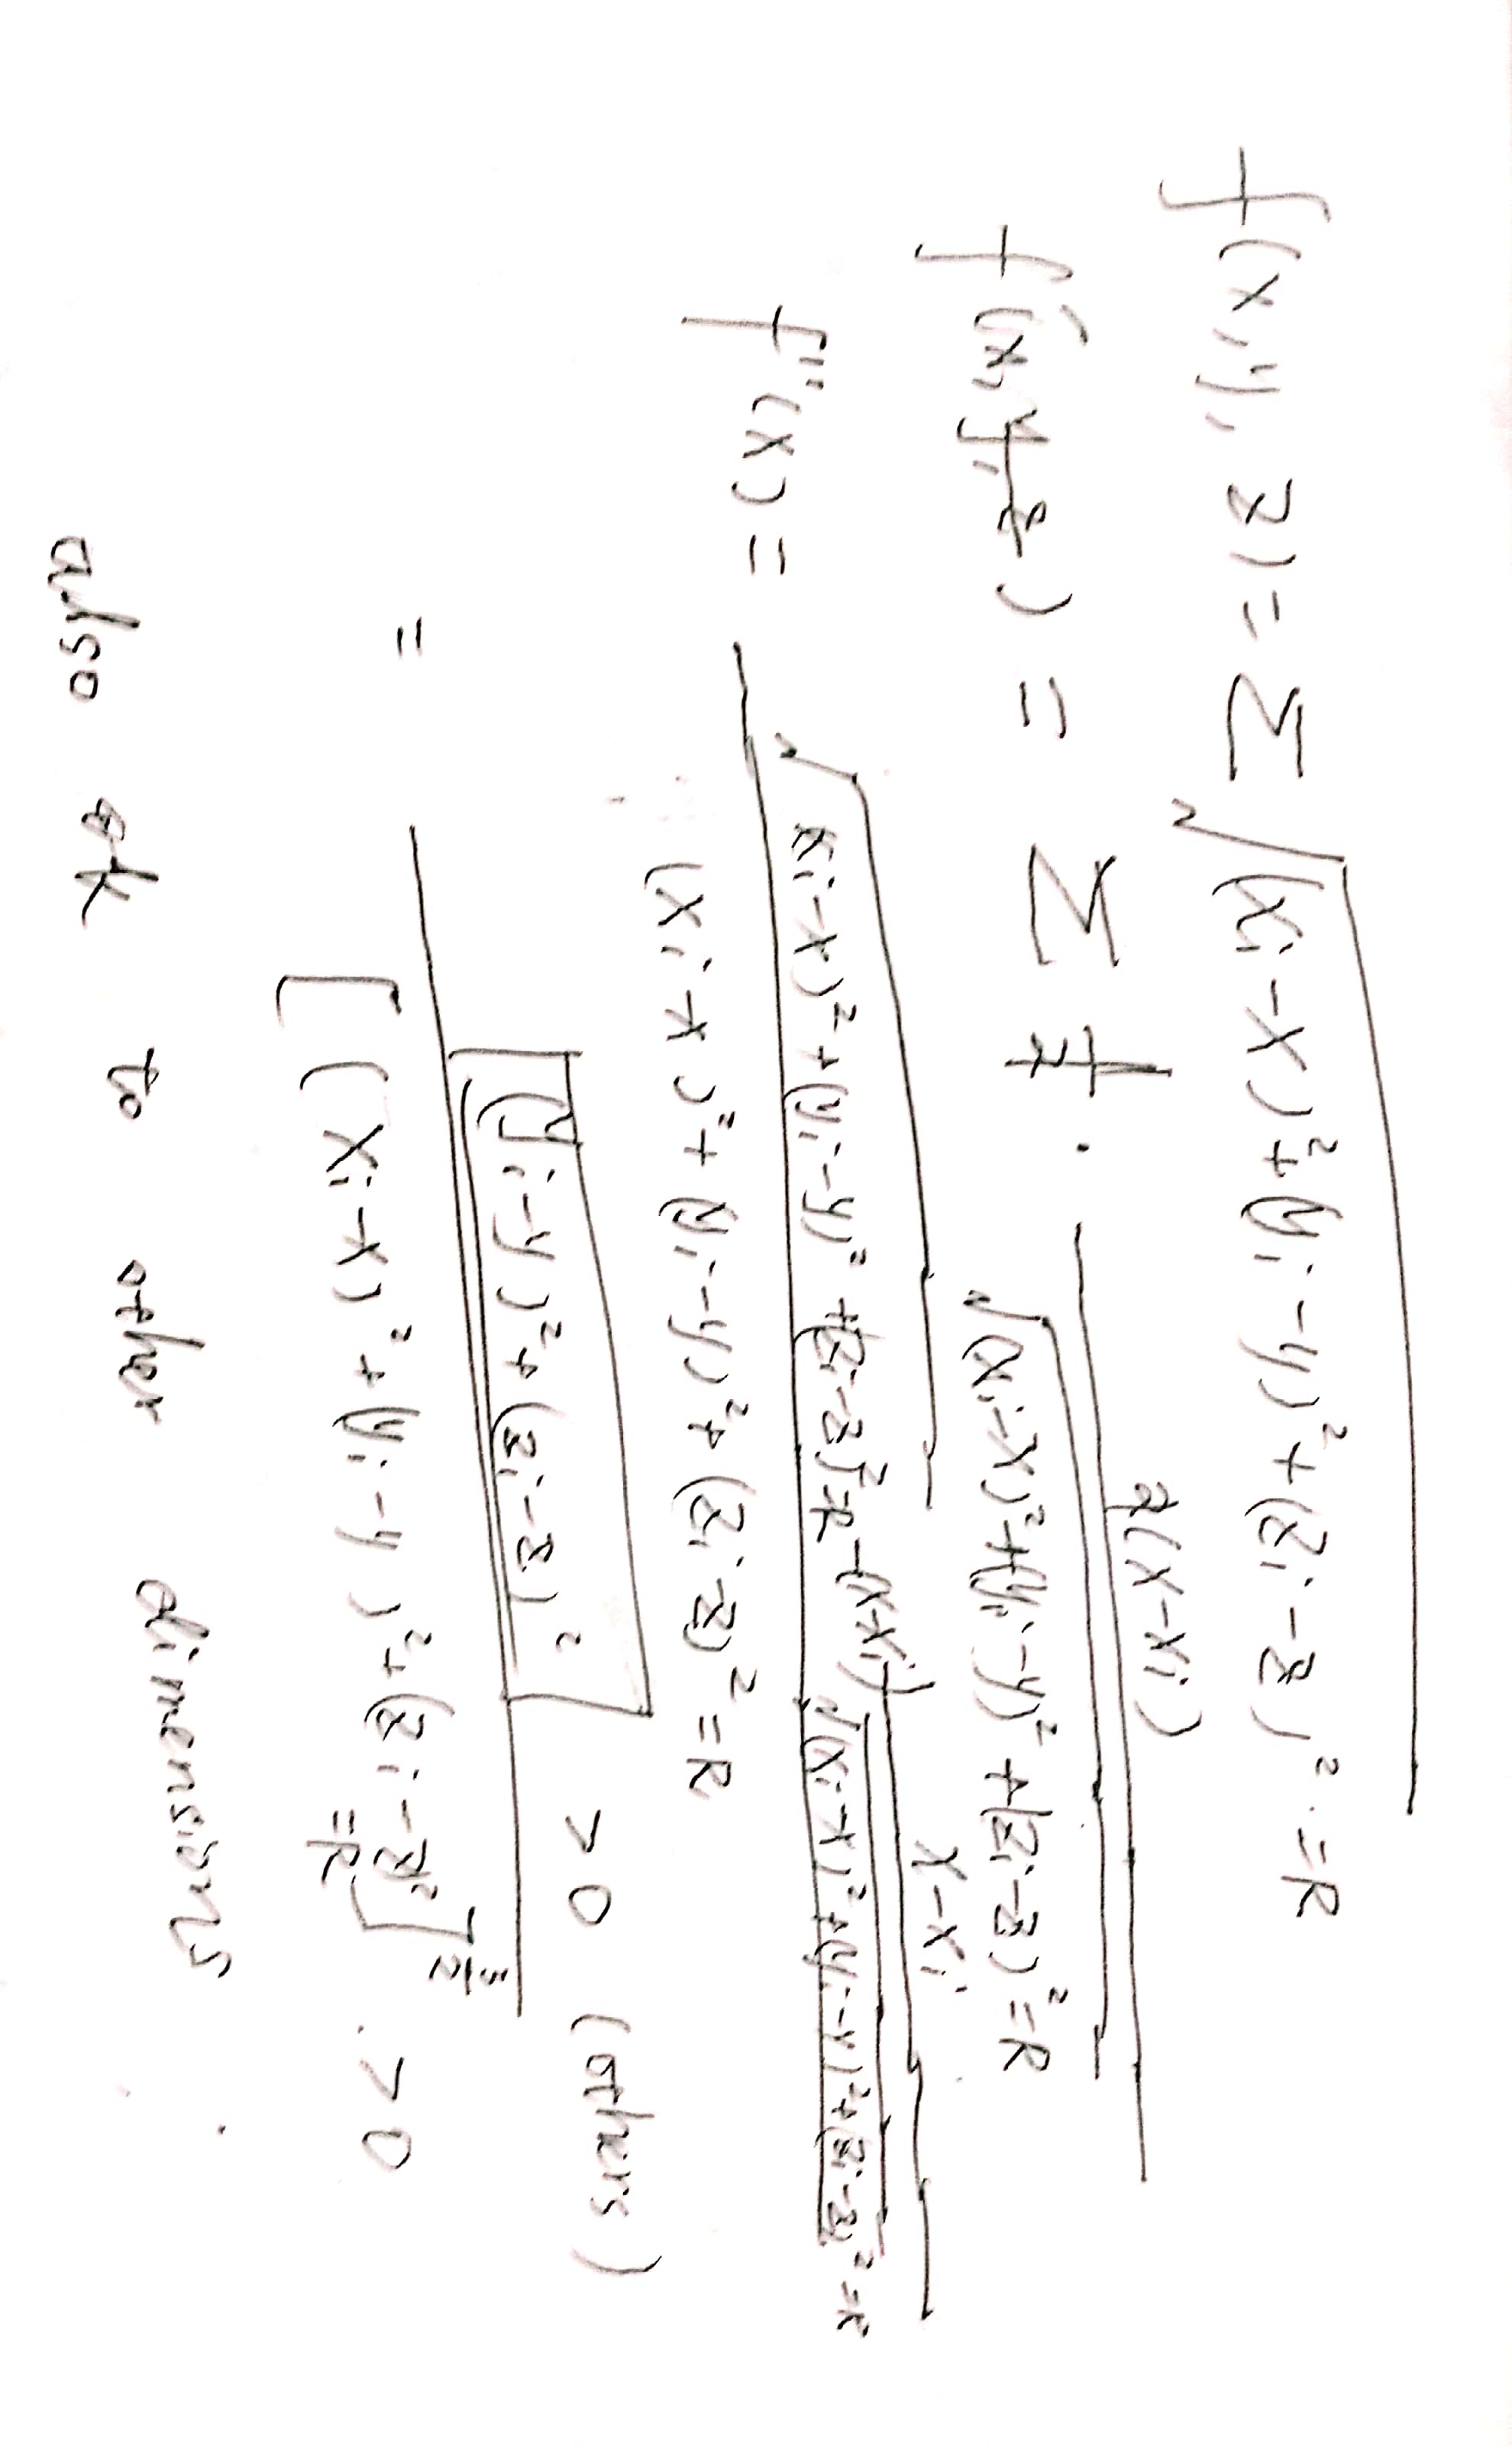 f(x,y,z) = Σ √(xi-x)²+(yi-y)²+(zi-z)² =R
f'(x,y,z) = Σ ½ · 2(x-xi) / √(xi-x)²+(yi-y)²+(zi-z)² =R
f''(x) = √(xi-x)²+(yi-y)²+(zi-z)²=R -(x-xi) x-xi / √(xi-x)²+(yi-y)²+(zi-z)²=R
(xi-x)²+(yi-y)²+(zi-z)²=R
= [(yi-y)²+(zi-z)²] >0 (others)
[(xi-x)²+(yi-y)²+(zi-z)²]^3/2 =R >0
also ok to other dimensions